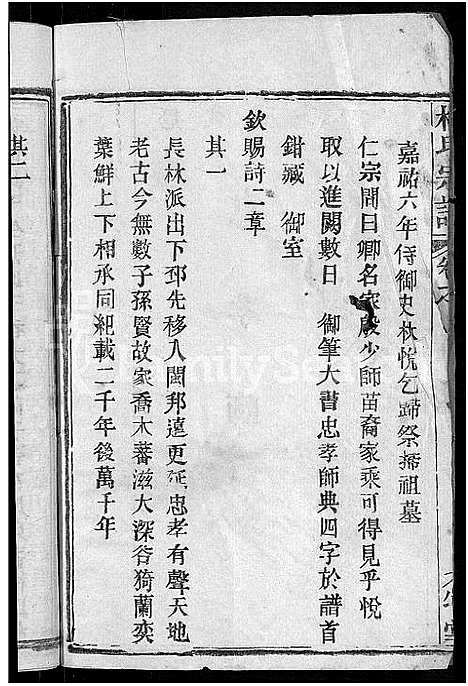 林氏宗譜
嘉祐六年侍御史林悅乞歸祭掃祖墓
仁宗閱目卿名家殷少師苗裔家乘可得見乎悅
取以進閱數日　御筆大書忠孝師典四字於譜首
鉗臧　御室
欽賜詩二章
其一
長林派出下邳先移入閩邦遠更延忠孝有聲天地
老古今無數子孫賢故家喬木蕃滋大深谷猗蘭奕
葉鮮上下相承同紀載二千年後萬千年
其二